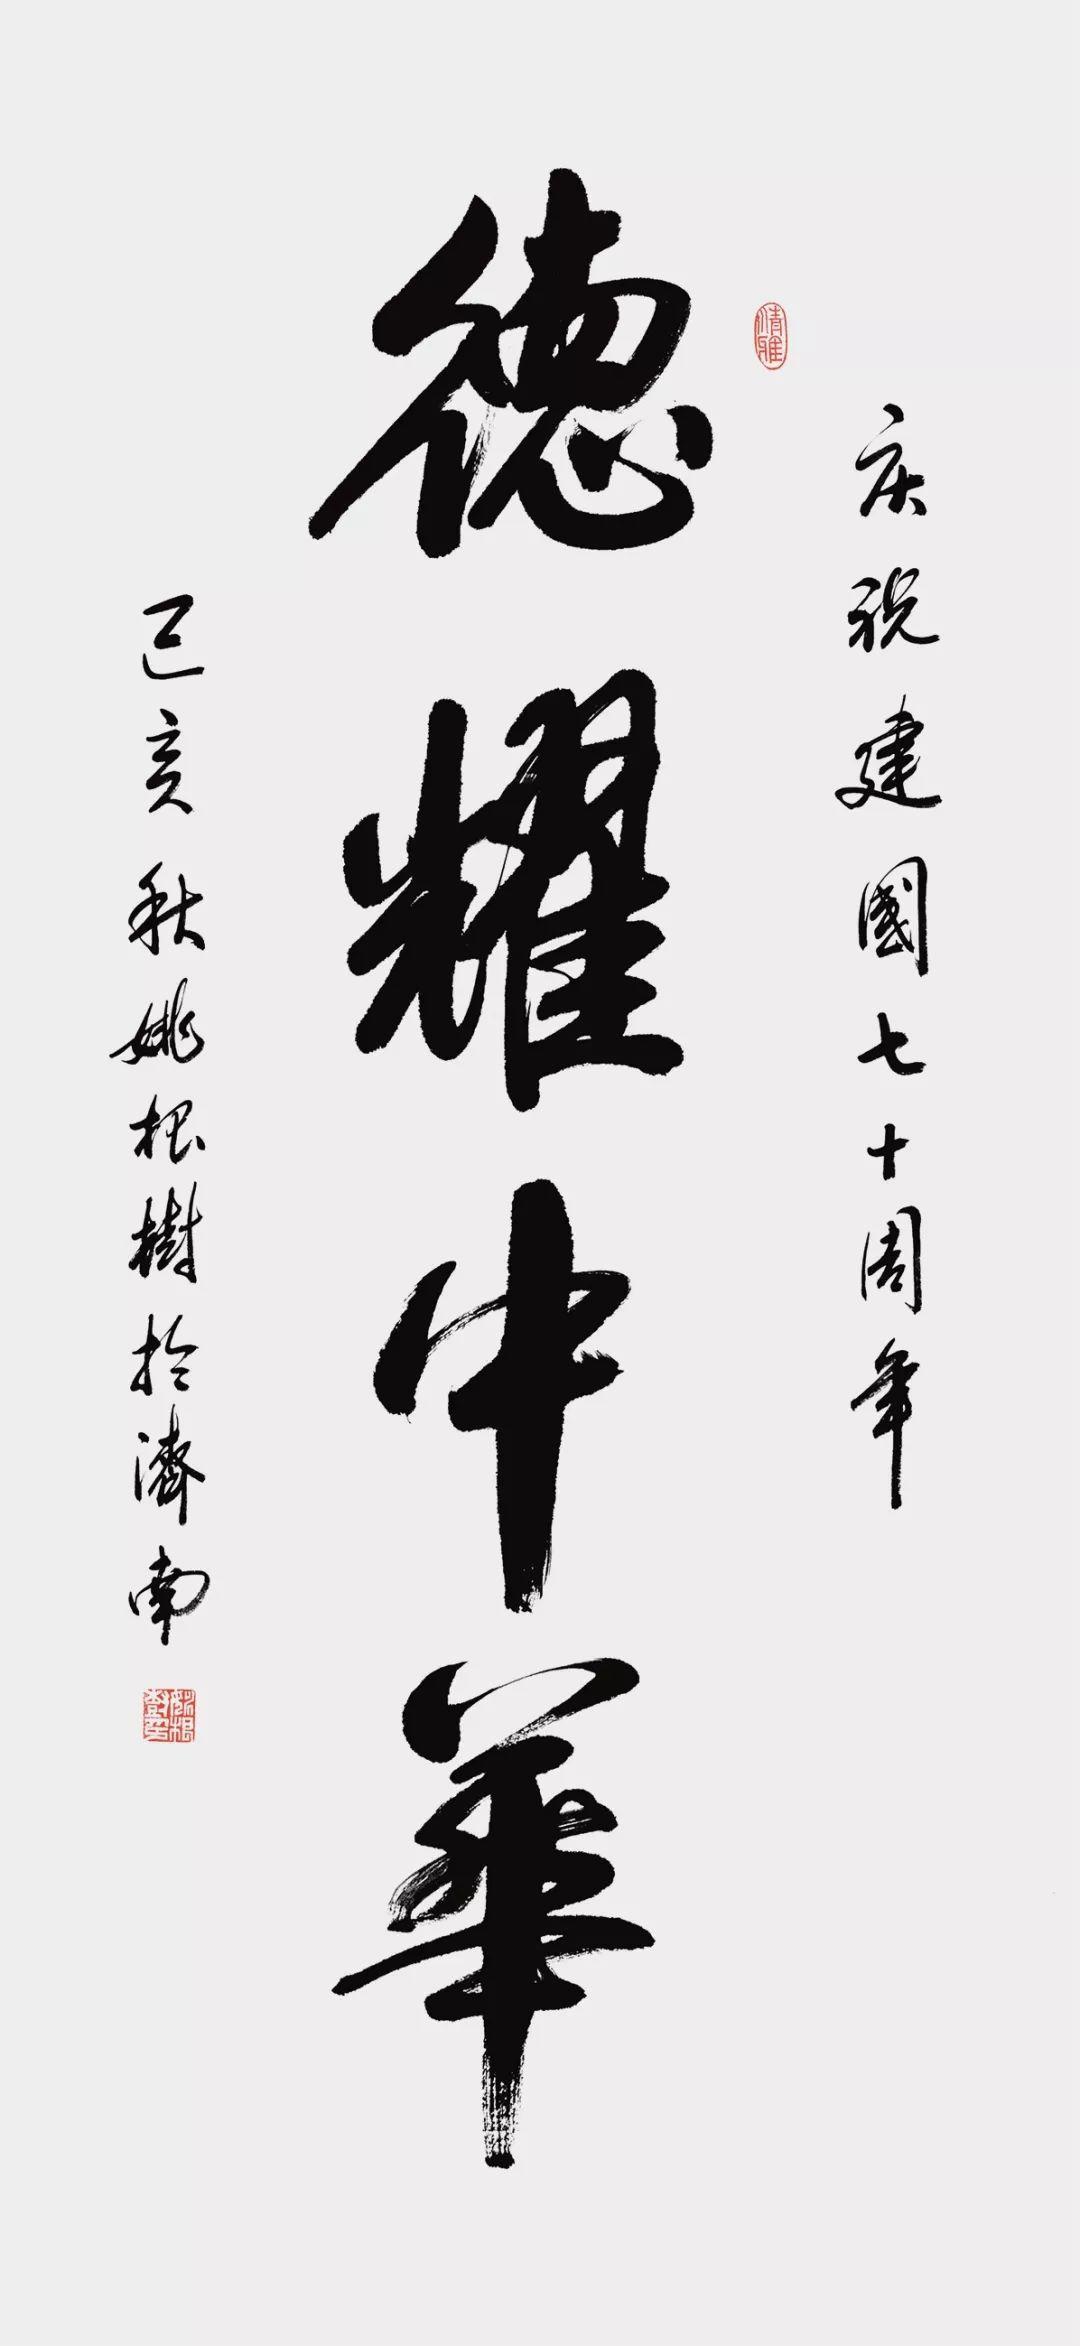 庆祝建國七十周年
德耀中華
己亥秋姚根樹於濟南
清雅
姚根樹